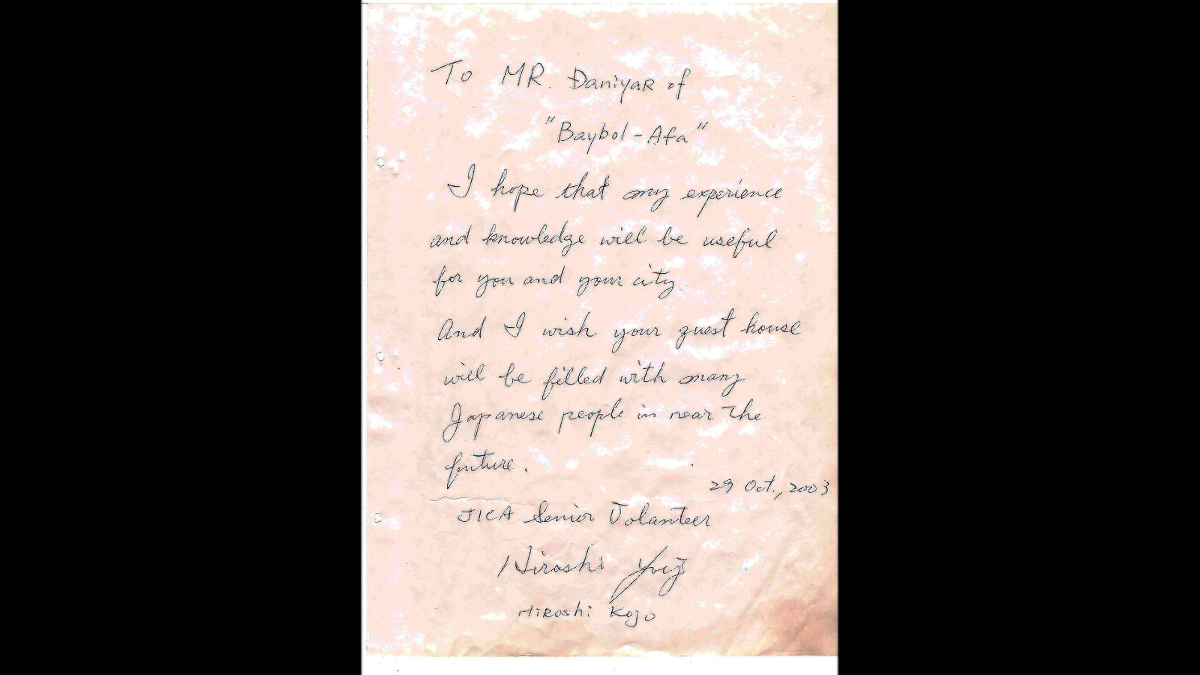 To MR. Daniyar of
"Baybol-Afa"
I hope that my experience
and knowledge will be useful
for you and your city.
And I wish your guest house
will be filled with many
Japanese people in near the
future.
29 Oct., 2003
JICA Senior Volanteer
Hiroshi
HiRoshi Kojo